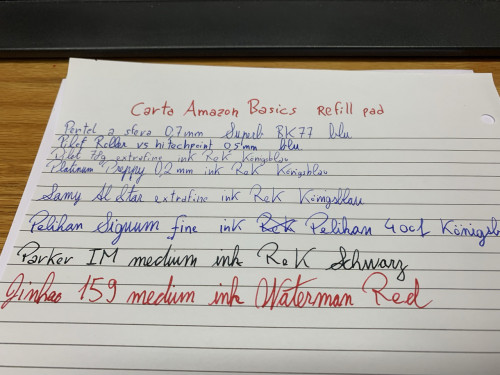 Carta Amazon Basics Refill pad
Pentel a sfera 0,7mm Superb BK77 blu
Pilot Roller V5 hitechpoint 0,5mm blu
Pilot extrafine ink R&K Königsblau
Platinum Preppy 0,2 mm ink R&K Königsblau
Lamy Al Star extrafine ink R&K Königsblau
Pelikan Signum fine ink R&K Pelikan 4001 Königsb
Parker IM medium ink R&K Schwarz
Jinhao 159 medium ink Waterman Red